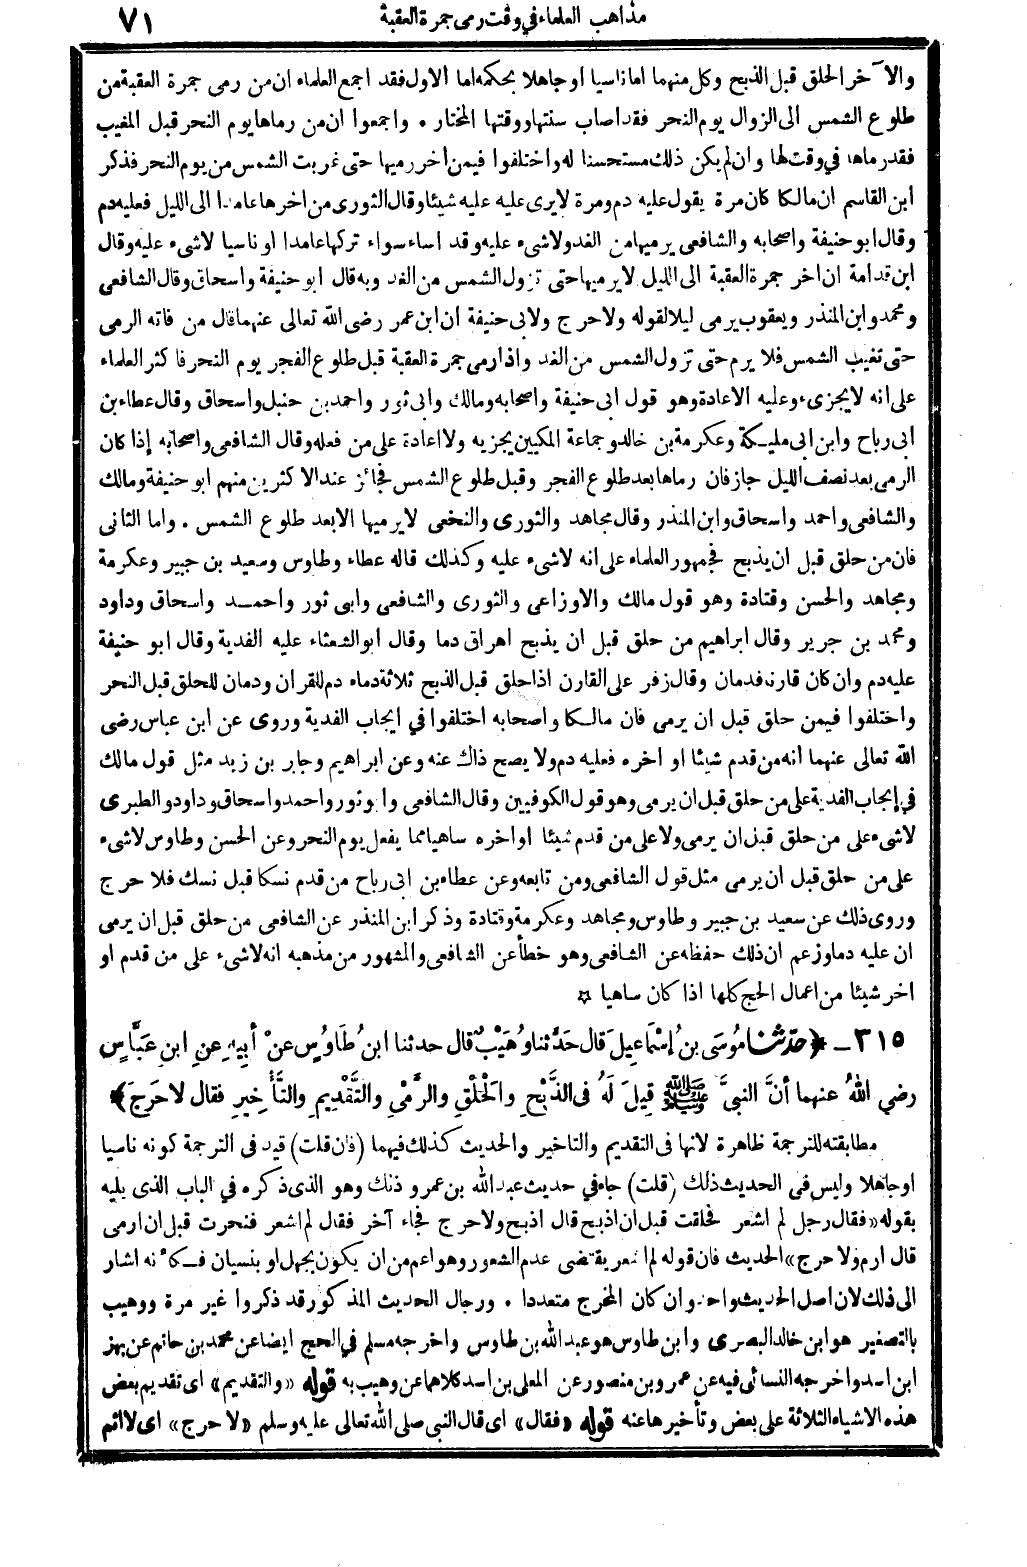 مذاهب العلماء في وقت رمى جمرة العقبة ٧١
والآخر الحلق قبل الذبح وكل منهما اما ناسيا او جاهلا بحكمه اما الاول فقد اجمع العلماء ان من رمى جمرة العقبة من
طلوع الشمس الى الزوال يوم النحر فقد اصاب سنتها ووقتها المختار . واجمعوا ان من رماها يوم النحر قبل المغيب
فقد رماها في وقت لها وان لم يكن ذلك مستحسنا له واختلفوا فيمن أخر رميها حتى غربت الشمس من يوم النحر فذكر
ابن القاسم ان مالكا كان مرة يقول عليه دم ومرة لا يرى عليه عليه شيئا وقال الثورى من اخرها عامدا الى الليل فعليه دم
وقال ابو حنيفة واصحابه والشافعى يرميها من الغد ولا شىء عليه وقد اساء سواء تركها عامدا او ناسيا لاشىء عليه وقال
ابن قدامة ان اخر جمرة العقبة الى الليل لا يرميها حتى تزول الشمس من الغد وبه قال ابو حنيفة واسحاق وقال الشافعى
ومحمد وابن المنذر ويعقوب يرمى ليلا لقوله ولا حرج ولابى حنيفة ان ابن عمر رضى الله تعالى عنهما قال من فاته الرمى
حتى تغيب الشمس فلا يرم حتى تزول الشمس من الغد واذا رمى جمرة العقبة قبل طلوع الفجر يوم النحر فا كثر العلماء
على انه لا يجزىء وعليه الاعادة وهو قول ابى حنيفة واصحابه ومالك وابى ثور واحمد بن حنبل واسحاق وقال عطاء بن
ابى رباح وابن ابى مليكة وعكرمة بن خالد وجماعة المكيين يجزيه ولا اعادة على من فعله وقال الشافعى واصحابه إذا كان
الرمى بعد نصف الليل جاز فان رماها بعد طلوع الفجر وقبل طلوع الشمس فجائز عند الاكثرين منهم ابو حنيفة ومالك
والشافعى واحمد واسحاق وابن المنذر وقال مجاهد والثورى والنخعى لا يرميها الا بعد طلوع الشمس . واما الثانى
فان من حلق قبل ان يذبح فجمهور العلماء على انه لاشىء عليه وكذلك قاله عطاء وطاوس وسعيد بن جبير وعكرمة
ومجاهد والحسن وقتادة وهو قول مالك والاوزاعى والثورى والشافعى وابى ثور واحمد واسحاق وداود
ومحمد بن جرير وقال ابراهيم من حلق قبل ان يذبح اهراق دما وقال ابو الشعثاء عليه الفدية وقال ابو حنيفة
عليه دم وان كان قارنا فدمان وقال زفر على القارن اذا حلق قبل الذبح ثلاثة دماء دم للقران ودمان للحلق قبل النحر
واختلفوا فيمن حلق قبل ان يرمى فان مالكا واصحابه اختلفوا في ايجاب الفدية وروى عن ابن عباس رضى
الله تعالى عنهما أنه من قدم شيئا او اخره فعليه دم ولا يصح ذاك عنه وعن ابراهيم وجابر بن زيد مثل قول مالك
في إيجاب الفدية على من حلق قبل ان يرمى وهو قول الكوفيين وقال الشافعى وابو ثور واحمد واسحاق وداود والطبرى
لاشىء على من حلق قبل ان يرمى ولا على من قدم شيئا او اخره ساهيا مما يفعل يوم النحر وعن الحسن وطاوس لاشىء
على من حلق قبل ان يرمى مثل قول الشافعى ومن تابعه وعن عطاء بن ابى رباح من قدم نسكا قبل نسك فلا حرج
وروى ذلك عن سعيد بن جبير وطاوس ومجاهد وعكرمة وقتادة وذكر ابن المنذر عن الشافعى من حلق قبل ان يرمى
ان عليه دما وزعم ان ذلك حفظه عن الشافعى وهو خطأ عن الشافعى والمشهور من مذهبه انه لاشىء على من قدم او
اخر شيئا من اعمال الحج كلها اذا كان ساهيا ☆
٣١٥ ـ ﴿ حدّثنا مُوسَى بن إسْمَاعِيلَ قال حَدَّثَنا وُهَيْبٌ قال حدثنا ابنُ طَاوُسٍ عنْ أبِيهِ عنِ ابنِ عَبَّاسٍ
رضي اللهُ عنهما أنَّ النبيَّ ﷺ قِيلَ لَهُ فى الذَّبْحِ والحَلْقِ والرَّمْىِ والتَّقْدِيمِ والتَّأْخِيرِ فقال لا حَرَجَ ﴾
مطابقته للترجمة ظاهرة لانها فى التقديم والتاخير والحديث كذلك فيهما (فان قلت) قيد فى الترجمة كونه ناسيا
او جاهلا وليس فى الحديث ذلك (قلت) جاء في حديث عبد الله بن عمرو ذلك وهو الذى ذكره في الباب الذى يليه
بقوله «فقال رجل لم اشعر فحلقت قبل ان اذبح قال اذبح ولا حرج فجاء آخر فقال لم اشعر فنحرت قبل ان ارمى
قال ارم ولا حرج» الحديث فان قوله لم اشعر يقتضى عدم الشعور وهو اعم من ان يكون بجهل او بنسيان فكأنه اشار
الى ذلك لان اصل الحديث واحد وان كان المخرج متعددا . ورجال الحديث المذكور قد ذكروا غير مرة ووهيب
بالتصغير هو ابن خالد البصرى وابن طاوس هو عبد الله بن طاوس واخرجه مسلم في الحج ايضا عن محمد بن حاتم عن بهز
ابن اسد واخرجه النسائى فيه عن عمرو بن منصور عن المعلى بن اسد كلاهما عن وهيب به قوله «والتقديم» اى تقديم بعض
هذه الاشياء الثلاثة على بعض وتأخيرها عنه قوله «فقال» اى قال النبى صلى الله تعالى عليه وسلم «لا حرج» اى لا اثم